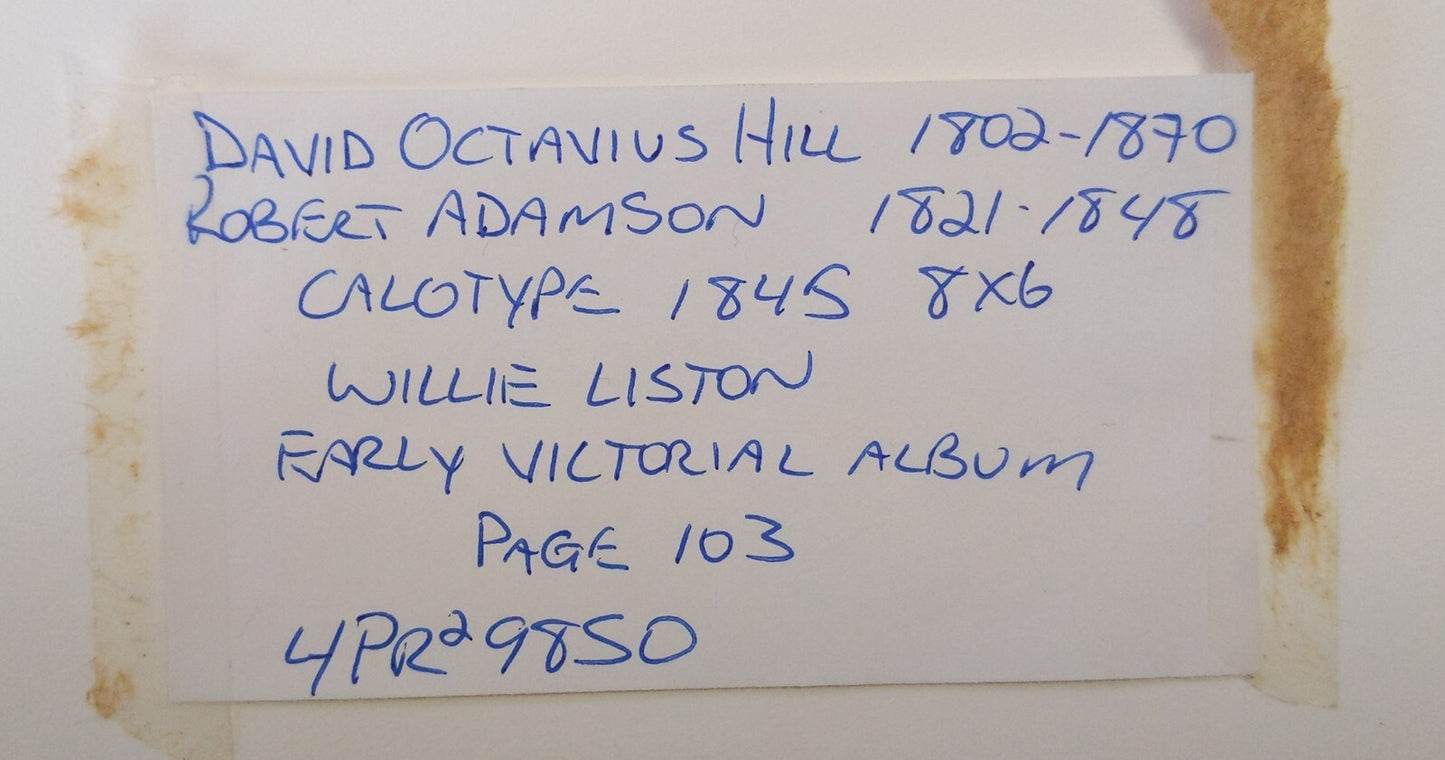 DAVID OCTAVIUS HILL 1802-1870
ROBERT ADAMSON 1821-1848
CALOTYPE 1845 8X6
WILLIE LISTON
EARLY VICTORIAL ALBUM
PAGE 103
4PR²9850